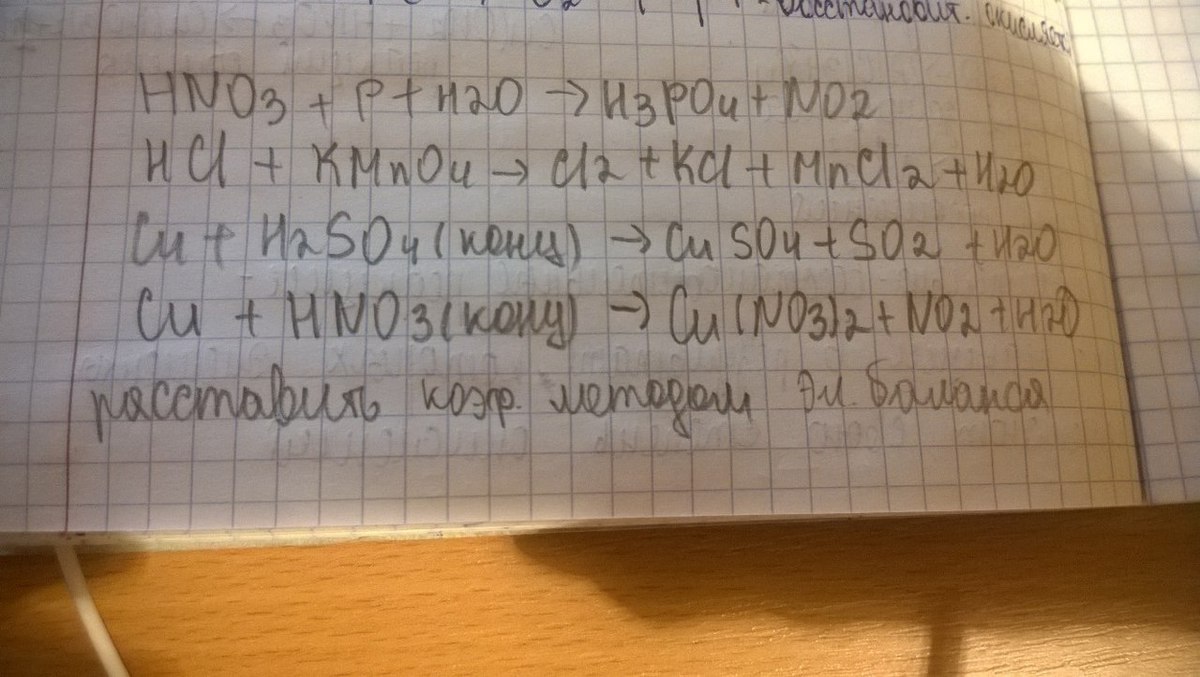 восстановит. окисляет
HNO3 + P + H2O → H3PO4 + NO2
HCl + KMnO4 → Cl2 + KCl + MnCl2 + H2O
Cu + H2SO4 (конц) → CuSO4 + SO2 + H2O
Cu + HNO3 (конц) → Cu(NO3)2 + NO2 + H2O
расставить коэф. методом эл. баланса